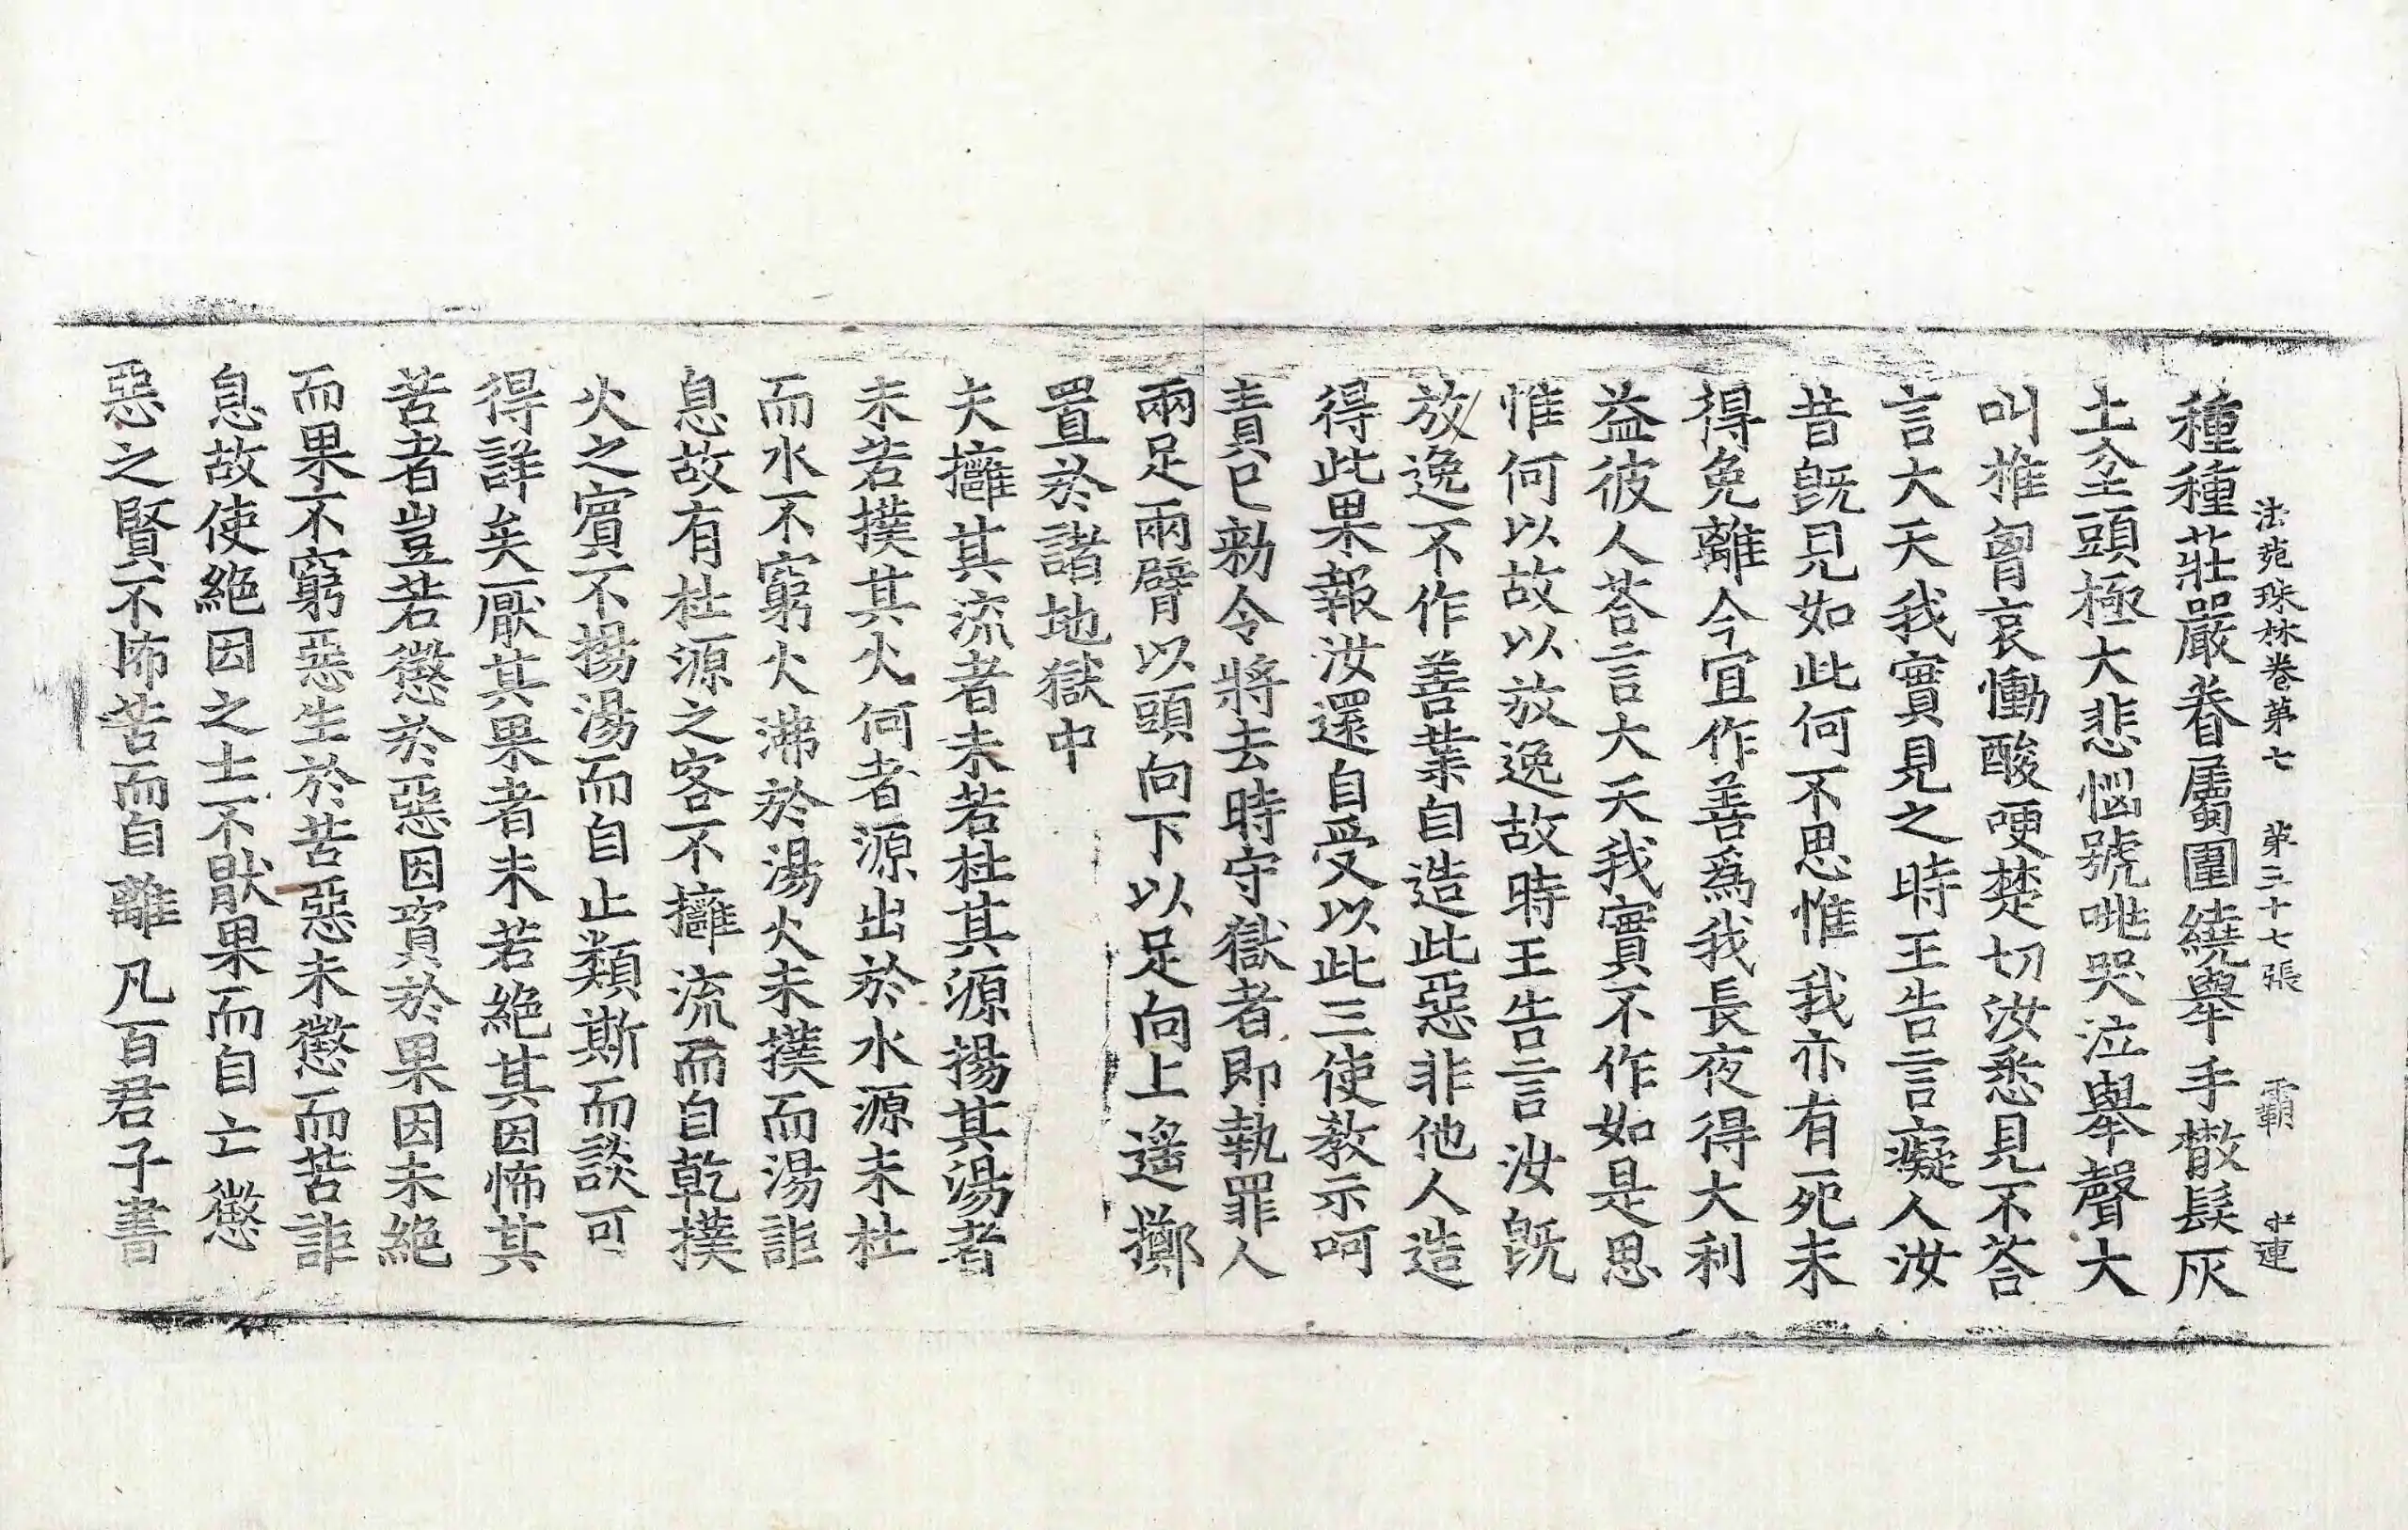 法苑珠林卷第七 第三十七張 霸 中連
種種莊嚴眷屬圍繞舉手散髮灰
土坌頭極大悲惱號咷哭泣舉聲大
叫椎匈哀慟酸哽楚切汝悉見不荅
言大天我實見之時王告言癡人汝
昔既見如此何不思惟我亦有死未
得免離今宜作善爲我長夜得大利
益彼人荅言大天我實不作如是思
惟何以故以放逸故時王告言汝既
放逸不作善業自造此惡非他人造
得此果報汝還自受以此三使教示呵
責已勑令將去時守獄者即執罪人
兩足兩臂以頭向下以足向上遥擲
置於諸地獄中
夫擁其流者未若杜其源揚其湯者
未若撲其火何者源出於水源未杜
而水不窮火沸於湯火未撲而湯詎
息故有杜源之客不擁流而自乾撲
火之賓不揚湯而自止類斯而談可
得詳矣厭其果者未若絕其因怖其
苦者豈若懲於惡因資於果因未絕
而果不窮惡生於苦惡未懲而苦詎
息故使絕因之士不猒果而自亡懲
惡之賢不怖苦而自離凡百君子書